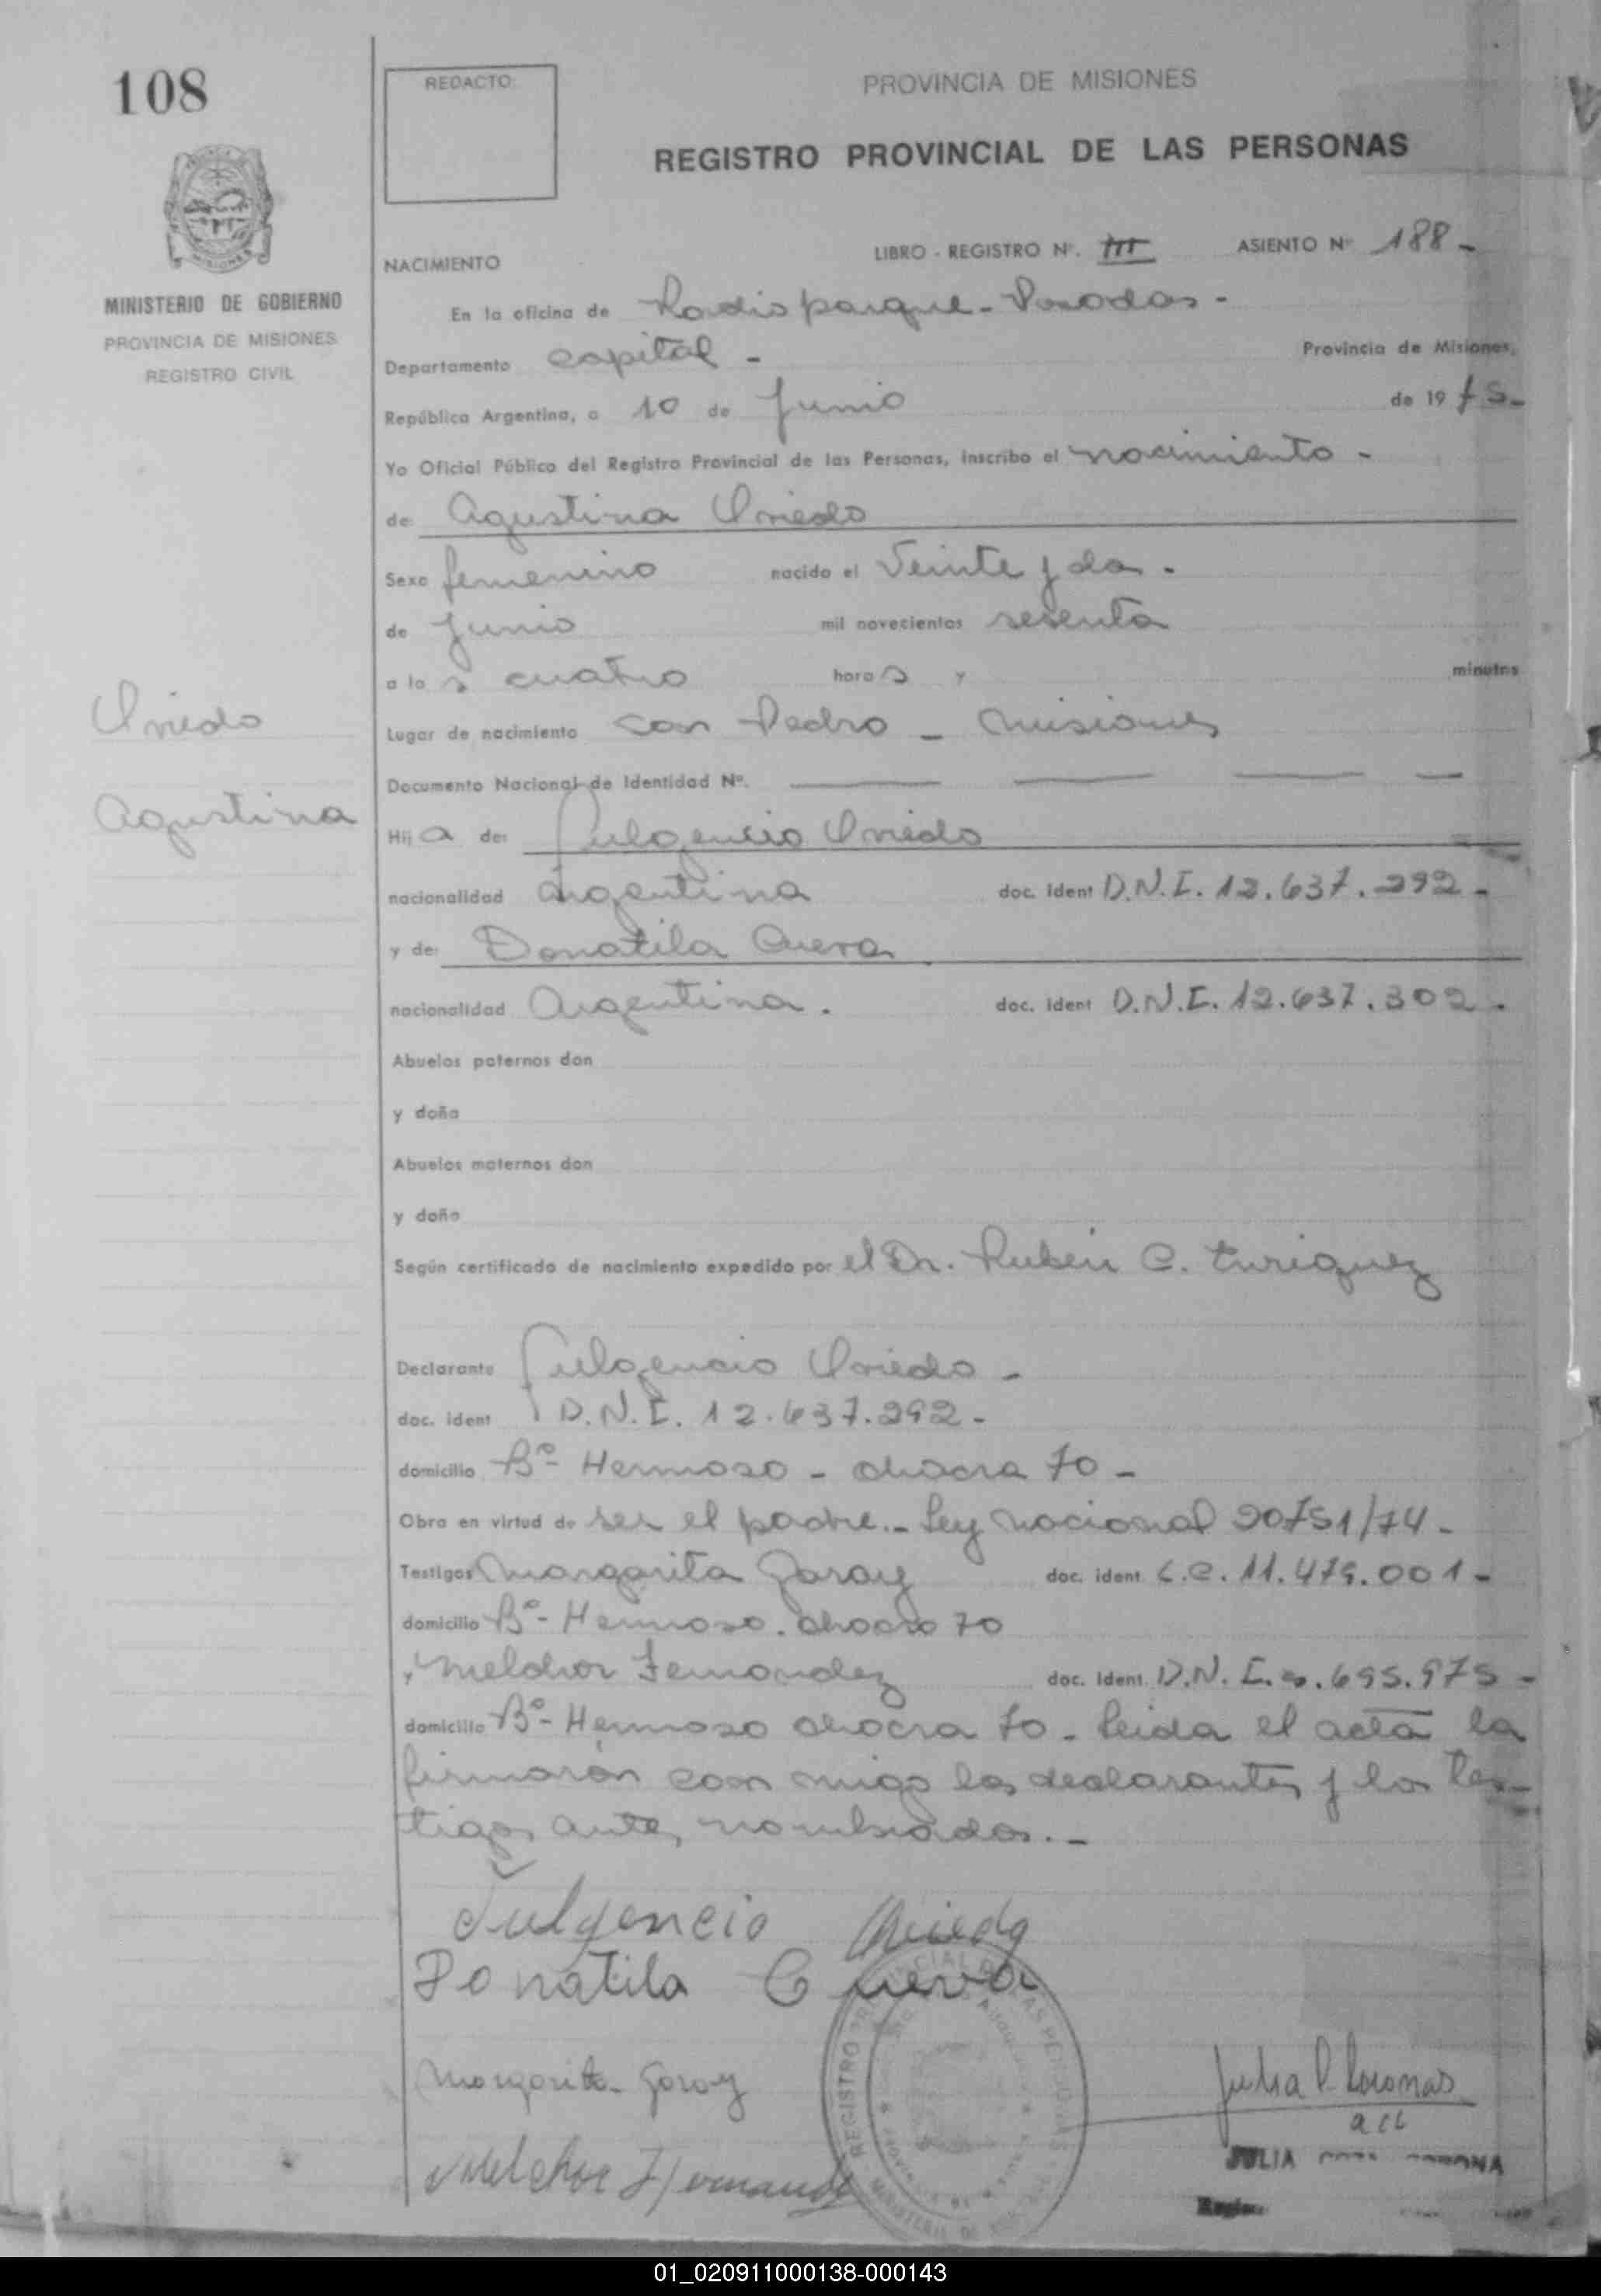 108
REDACTO:
PROVINCIA DE MISIONES
REGISTRO PROVINCIAL DE LAS PERSONAS
MINISTERIO DE GOBIERNO
PROVINCIA DE MISIONES
REGISTRO CIVIL
NACIMIENTO LIBRO - REGISTRO Nº. III ASIENTO Nº 188 -
En la oficina de Radio parque - Posadas -
Departamento capital - Provincia de Misiones,
República Argentina, a 10 de Junio de 1975 -
Yo Oficial Público del Registro Provincial de las Personas, inscribo el nacimiento -
de: Agustina Oviedo
Sexo femenino nacido el Veinte y dos -
de Junio mil novecientos sesenta
a las cuatro horas y minutos
Lugar de nacimiento San Pedro - Misiones
Oviedo
Agustina
Documento Nacional de Identidad Nº.
Hija de: Fulgencio Oviedo
nacionalidad Argentina doc. ident D.N.I. 12.637.292 -
y de: Donatila Cueva
nacionalidad Argentina. doc. ident D.N.I. 12.637.302 -
Abuelos paternos don
y doña
Abuelos maternos don
y doña
Según certificado de nacimiento expedido por el Dr. Rubén C. Enriquez
Declarante Fulgencio Oviedo -
doc. ident D.N.I. 12.637.292 -
domicilio Bº- Hermoso - chacra 70 -
Obra en virtud de ser el padre. - Ley nacional 20751/74 -
Testigos Margarita Garay doc. ident. L.C. 11.479.001 -
domicilio Bº- Hermoso. chacra 70
y Melchor Fernandez doc. ident. D.N.I. 695.975 -
domicilio Bº- Hermoso chacra 70 - Leida el acta la
firmarán con migo los declarantes y los tes-
tigos antes nombrados. -
Fulgencio Oviedo
Donatila Cueva
Margarita Garay
Melchor Fernandez
Julia
JULIA
REGISTRO PROVINCIAL DE LAS PERSONAS
01_020911000138-000143